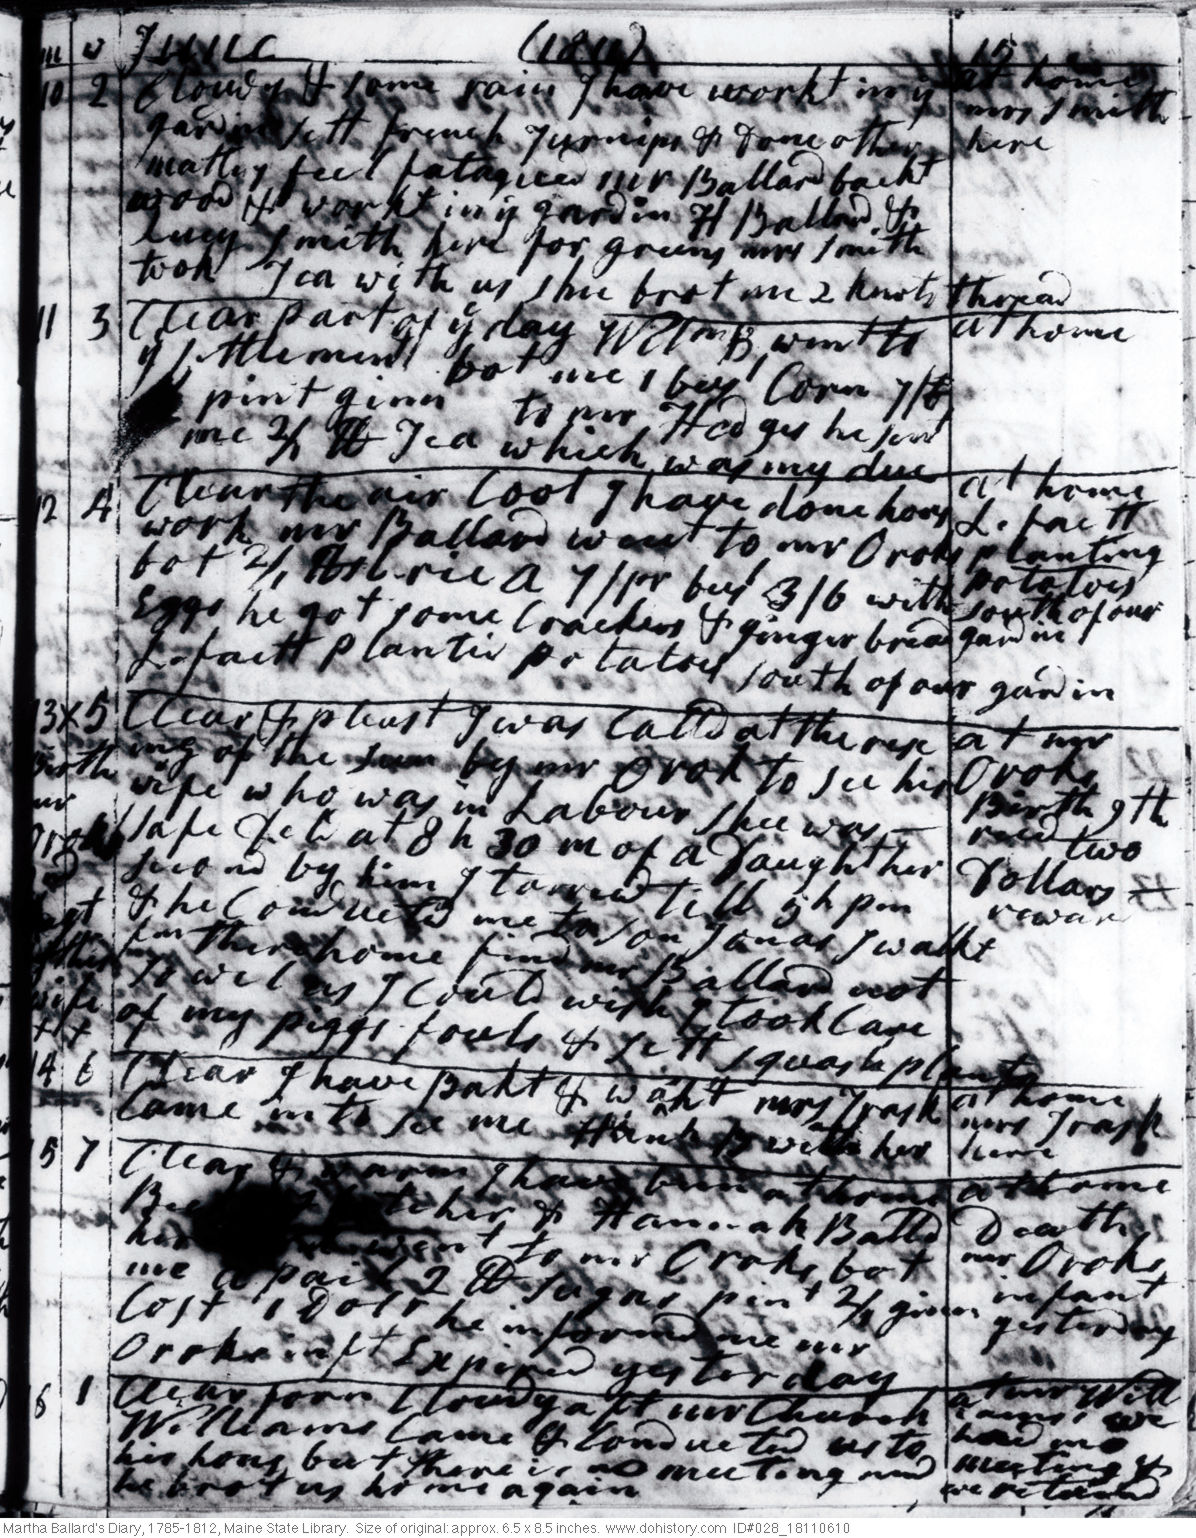 m w June (1811) 15
10 2 Cloudy & Some rain I have workt in ye at home
gardin sett french Turnips & Done other mrs Smith
matters feel fatagued mr Ballard backt here
wood & workt in ye gardin H Ballard &
Lucy Smith here for greens mrs Smith
took Tea with us Shee brot me 2 knots thread
11 3 Clear part of ye day Wm B, went to at home
ye settlement bot me 1 bus! Corn 7/6
pint ginn to mr Hodges he sent
me 2/1 lb Tea which was my due
12 4 Clear the air Cool I have done hous at home
work mr Ballard went to mr Oroks L. facitt
bot 2/1 lb rice a 7/ pr bus 3/6 with planting
Eggs he got some Crackers & ginger bread potatoes
L. facitt Plantid potatoes south of our gardin south of our gardin
13 x 5 Clear & pleast I was Calld at the rise at mr
ing of the sun by mr Orok to see his Oroks
Birth wife who was in Labour Shee was Birth 9th
mr Oroks safe Delt at 8 h 30 m of a Daughther recd two
second by him I tarried till 5h pm Dollars
& he Conducted me to son Jonas I walkt reward
further home find mr Ballard not
wife So well as I Could wish I took Care
x x of my piggs fowls & sett squash plants
14 6 Clear I have Bakt & washt mrs Trask at home
Came in to see me Hanh B with her mrs Trask here
15 7 Clear & warm I have been at home at home
& Hannah Balld Death
his went to mr Oroks, bot mr Oroks
me a pail 2 lb Sugar pint 2/1 ginn infant
Cost 1 Dolr he informd me mr yesterday
Oroks inft Expired yesterday
6 1 Clear forn Cloudy aft mr Church at mr Will
Williams Came & Conducted us to iams we
his hous but there is no meeting and had no
he brot us home again meeting &
we returnd